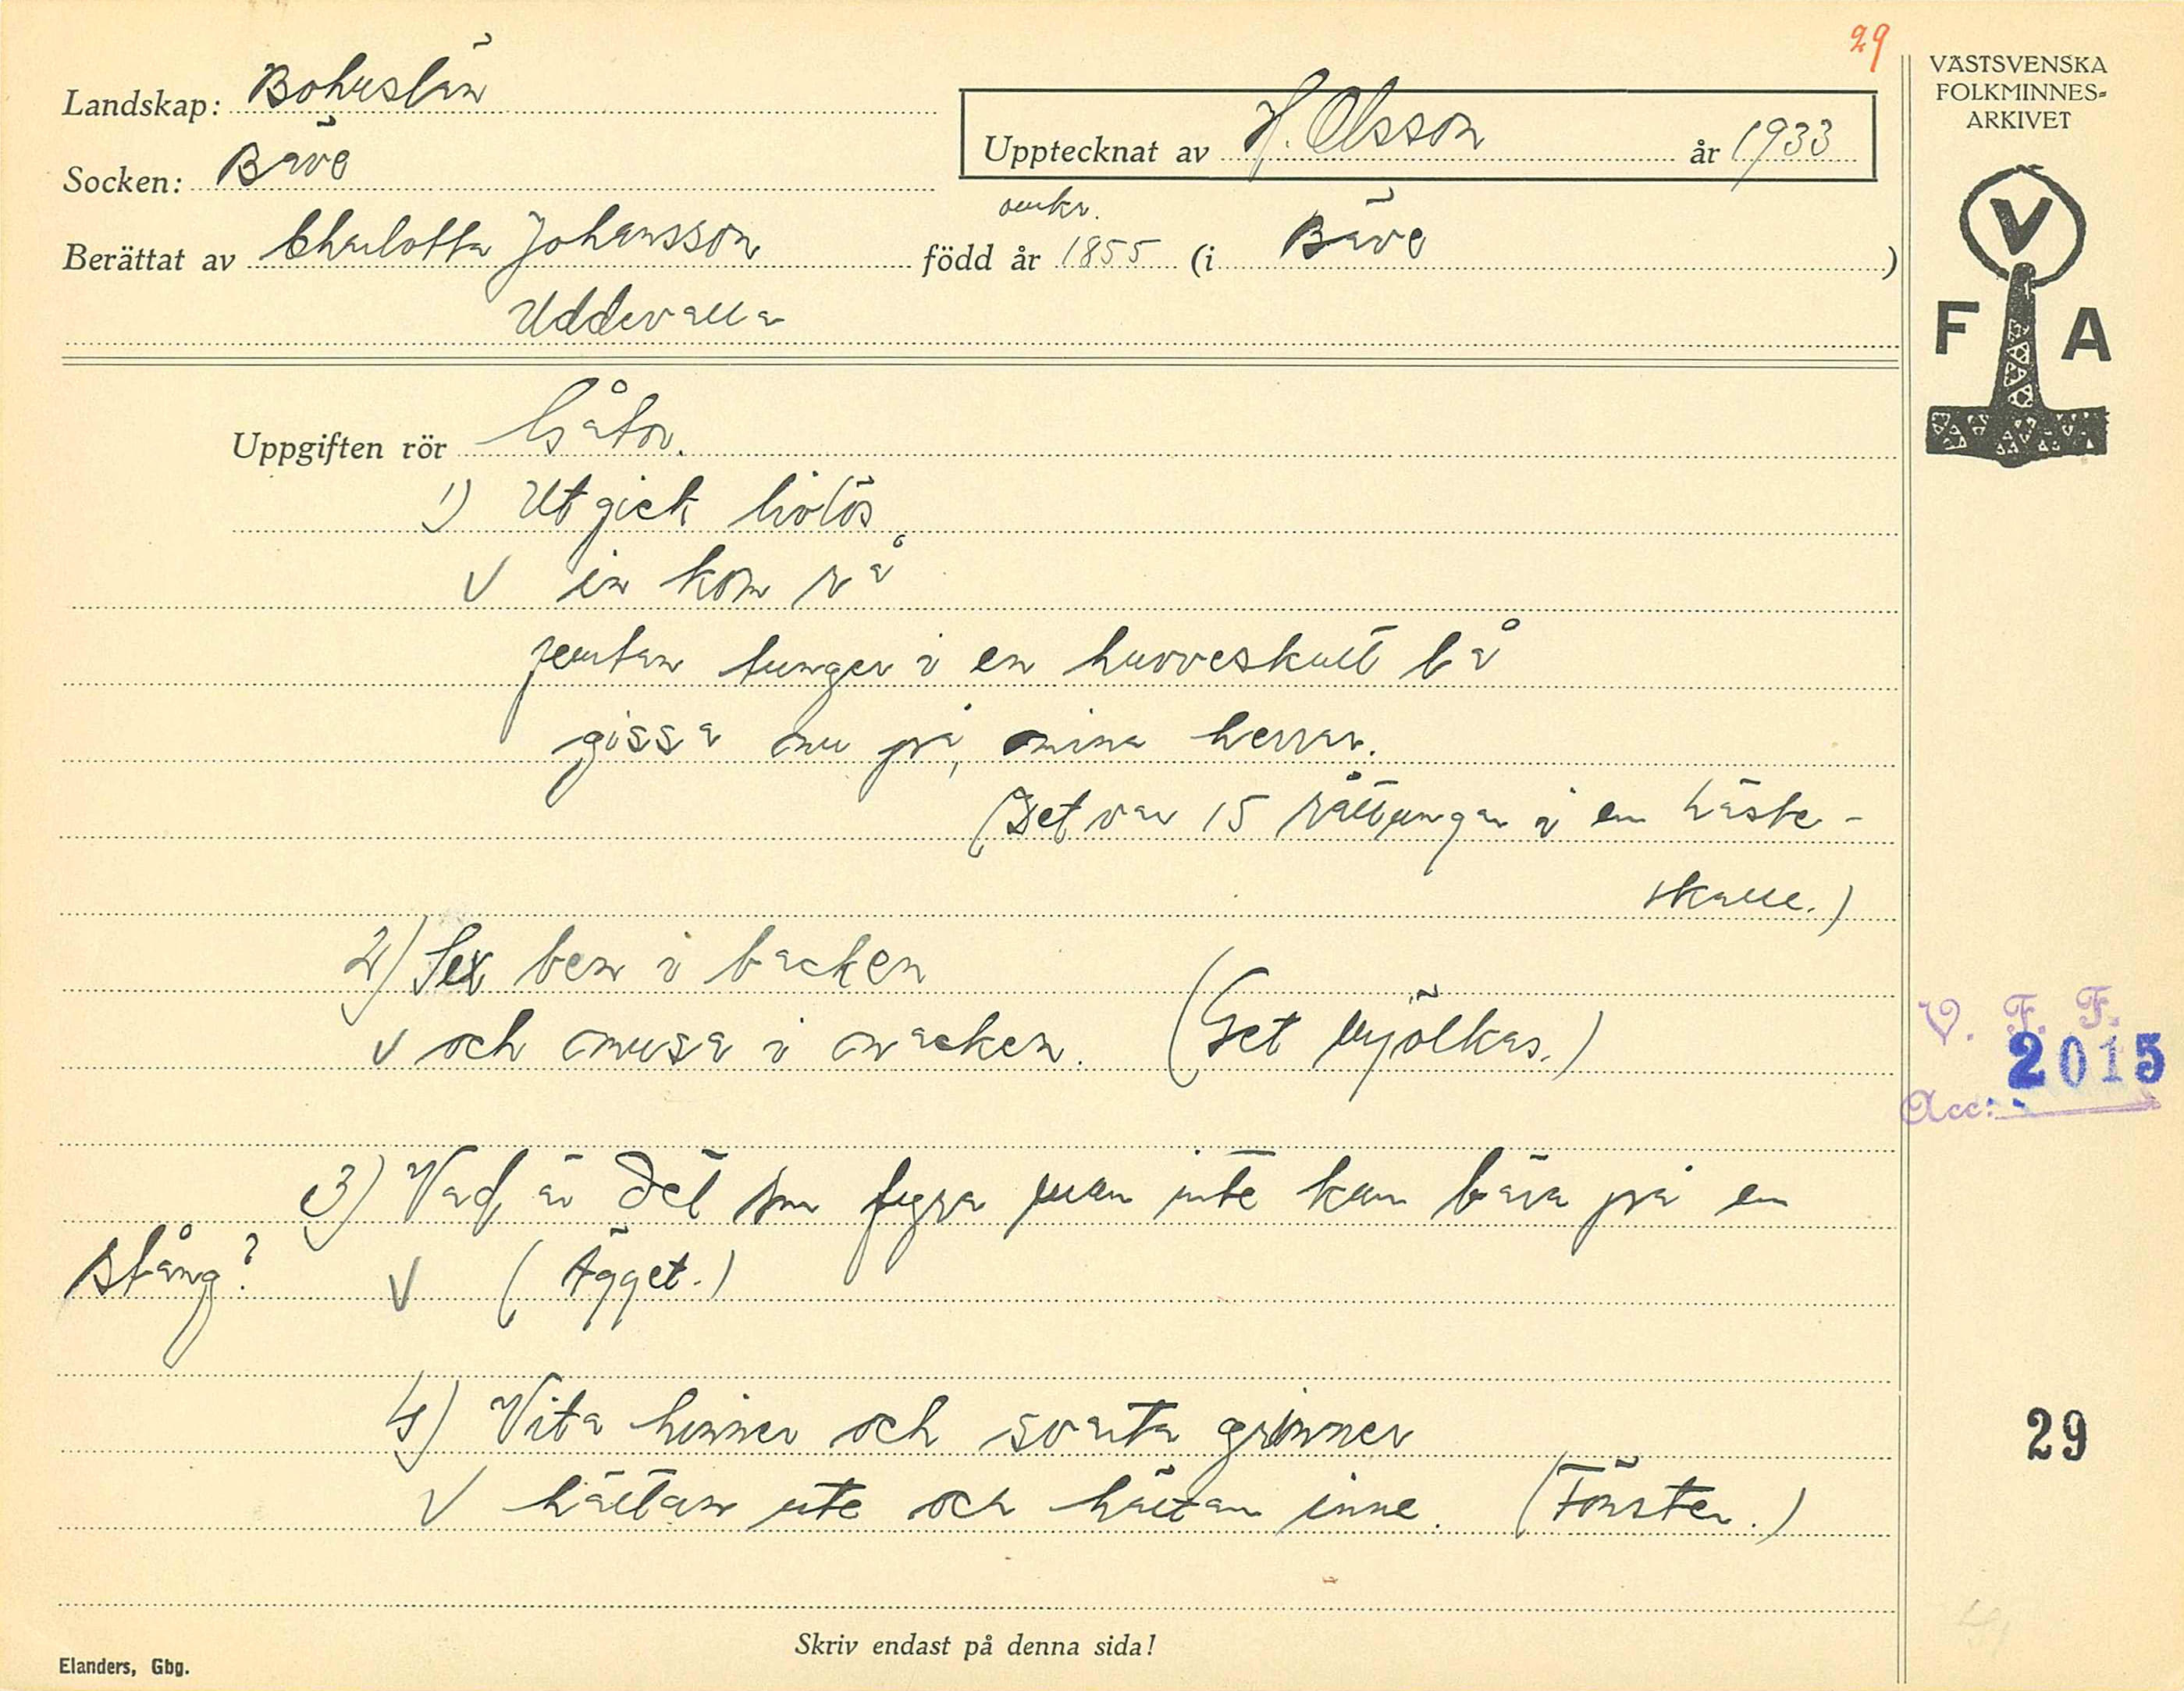 29
VÄSTSVENSKA
FOLKMINNES-
ARKIVET
Landskap: Bohuslän
Upptecknat av H. Olsson år 1933
Socken: Bäve
omkr.
Berättat av Charlotta Johansson född år 1855 (i Bäve)
Uddevalla
V
F A
Uppgiften rör Gåtor.
1) Ut gick livlös
V in kom rå
femtan tunger i en huvveskall lå
gissa nu på, mina herrar.
(Det var 15 råttungar i en häste-
skalle.)
2) Sex ben i backen
V och musa i nacken. (Get mjölkas.)
V. F. F.
2015
Acc:
3) Vad är det som fyra man inte kan bära på en
stång? V (Ägget.)
4) Vita hinner och svarta grinner
29
V hättan ute och hättan inne. (Fönster.)
Skriv endast på denna sida!
Elanders, Gbg.